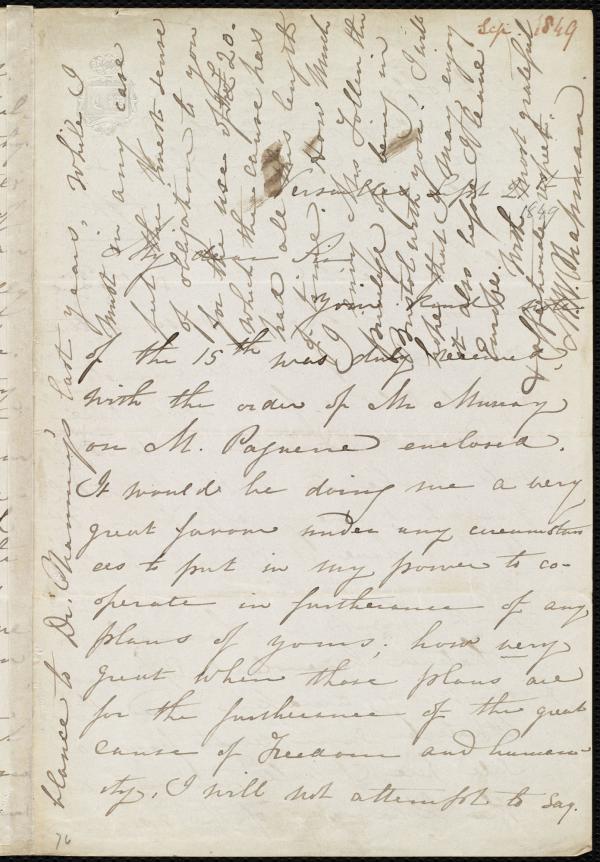 Sep. 1849
Versailles, Sept 2
1849
My dear Sir
Your kind note
of the 15th was duly received
with the order of Mr Murray
on M. Paguerre enclosed.
It would be doing me a very
great favour under any circumstan
ces to put in my power to co-
operate in furtherance of any
plans of yours; how very
great when those plans are
for the furtherance of the great
cause of Freedom and human-
ity, I will not attempt to say.
76
blance to Dr. Channing's last years, while I
must in any case
feel the finest sense
of obligation to you
for the use of the 20.
which the cause has
had all this length
of time. How much
I envy Mrs Follen the
privilege of being in
with you, I will
hope that I may enjoy
it also before I leave
Europe. With most grateful
& affectionate respect.
M. W. Chapman.